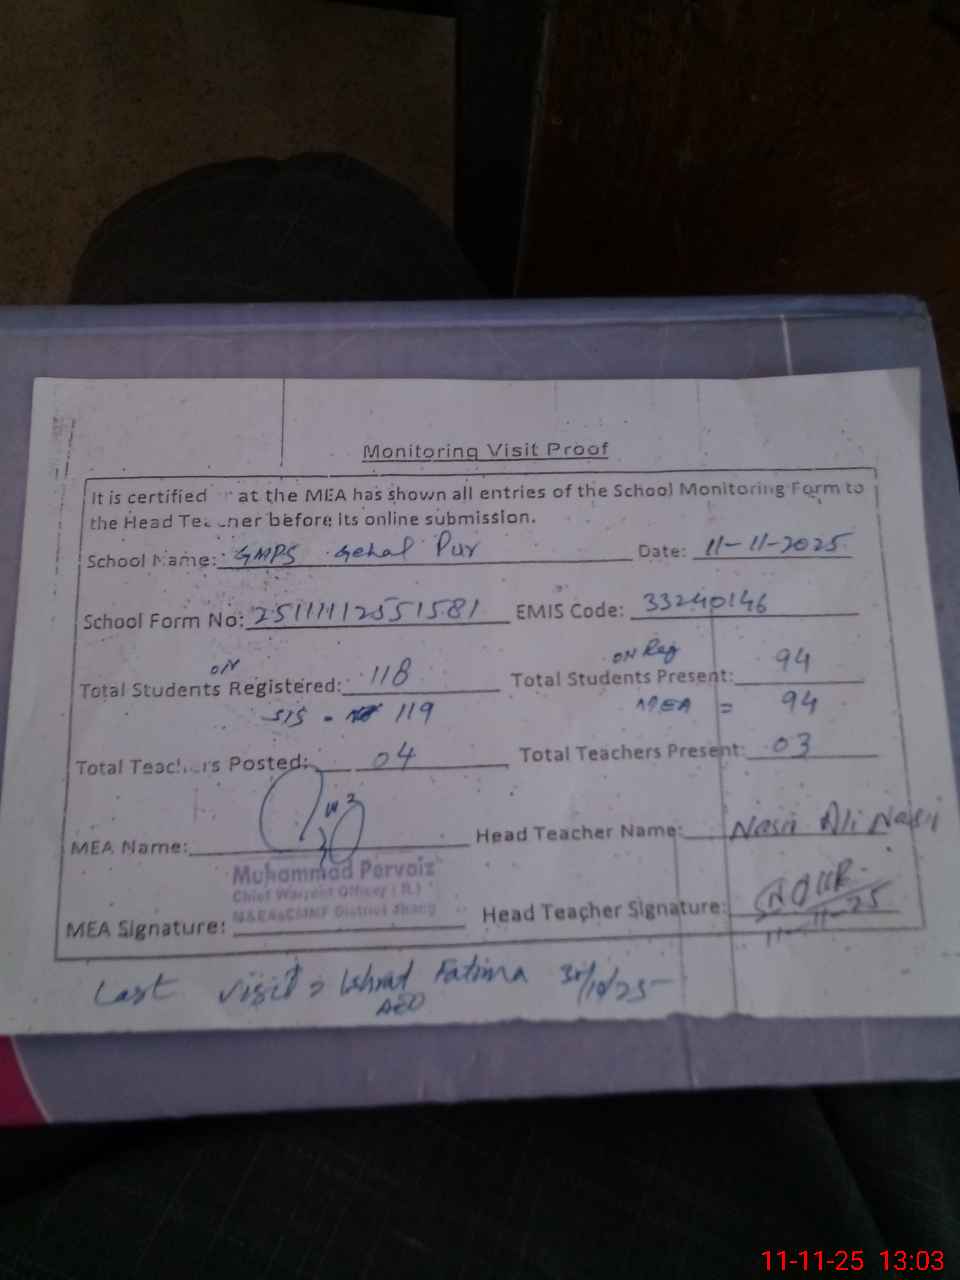 Monitoring Visit Proof
It is certified at the MEA has shown all entries of the School Monitoring Form to
the Head Teacher before its online submission.
School Name: GMPS Gehal Pur Date: 11-11-2025
School Form No: 25111112551581 EMIS Code: 33240146
ON ON Reg
Total Students Registered: 118 Total Students Present: 94
SIS - 119 MEA = 94
Total Teachers Posted: 04 Total Teachers Present: 03
MEA Name: Head Teacher Name: Nasir Ali Nasir
Muhammad Pervaiz
Chief Warrent Officer (R.)
M&EAsCMMF District Jhang
MEA Signature: Head Teacher Signature:
11-11-25
Last visit = Ishrat Fatima 31/10/25
AEO
11-11-25 13:03